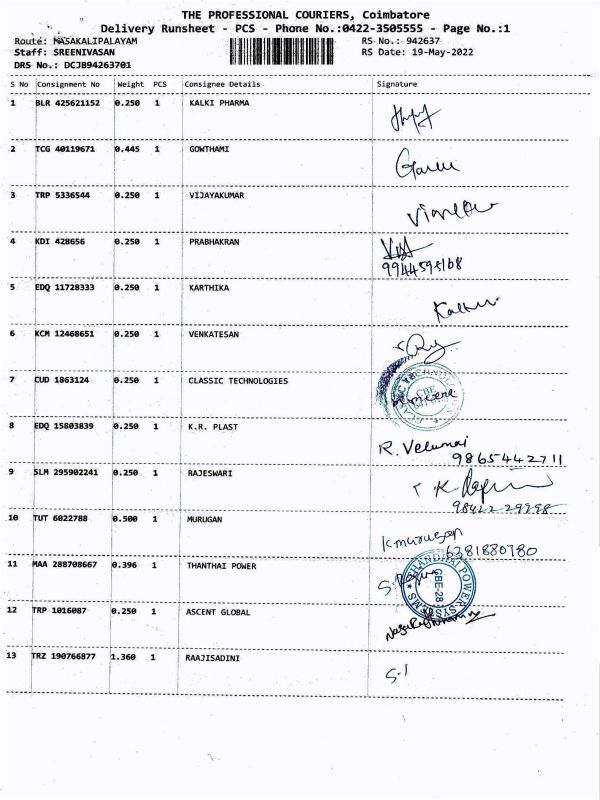 THE PROFESSIONAL COURIERS, Coimbatore
Delivery Runsheet - PCS - Phone No.:0422-3505555 - Page No.:1
Route: MASAKALIPALAYAM RS No.: 942637
Staff: SREENIVASAN RS Date: 19-May-2022
DRS No.: DCJB94263701
S No Consignment No Weight PCS Consignee Details Signature
1 BLR 425621152 0.250 1 KALKI PHARMA
2 TCG 40119671 0.445 1 GOWTHAMI
3 TRP 5336544 0.250 1 VIJAYAKUMAR
4 KDI 428656 0.250 1 PRABHAKRAN
9944595168
5 EDQ 11728333 0.250 1 KARTHIKA
6 KCM 12468651 0.250 1 VENKATESAN
7 CUD 1863124 0.250 1 CLASSIC TECHNOLOGIES
CBE
8 EDQ 15803839 0.250 1 K.R. PLAST
R. Velumai
9865442711
9 SLM 295902241 0.250 1 RAJESWARI
10 TUT 6022788 0.500 1 MURUGAN
K murugan
6381880780
11 MAA 288708667 0.396 1 THANTHAI POWER
CBE-28
12 TRP 1016087 0.250 1 ASCENT GLOBAL
13 TRZ 190766877 1.360 1 RAAJISADINI
S-1